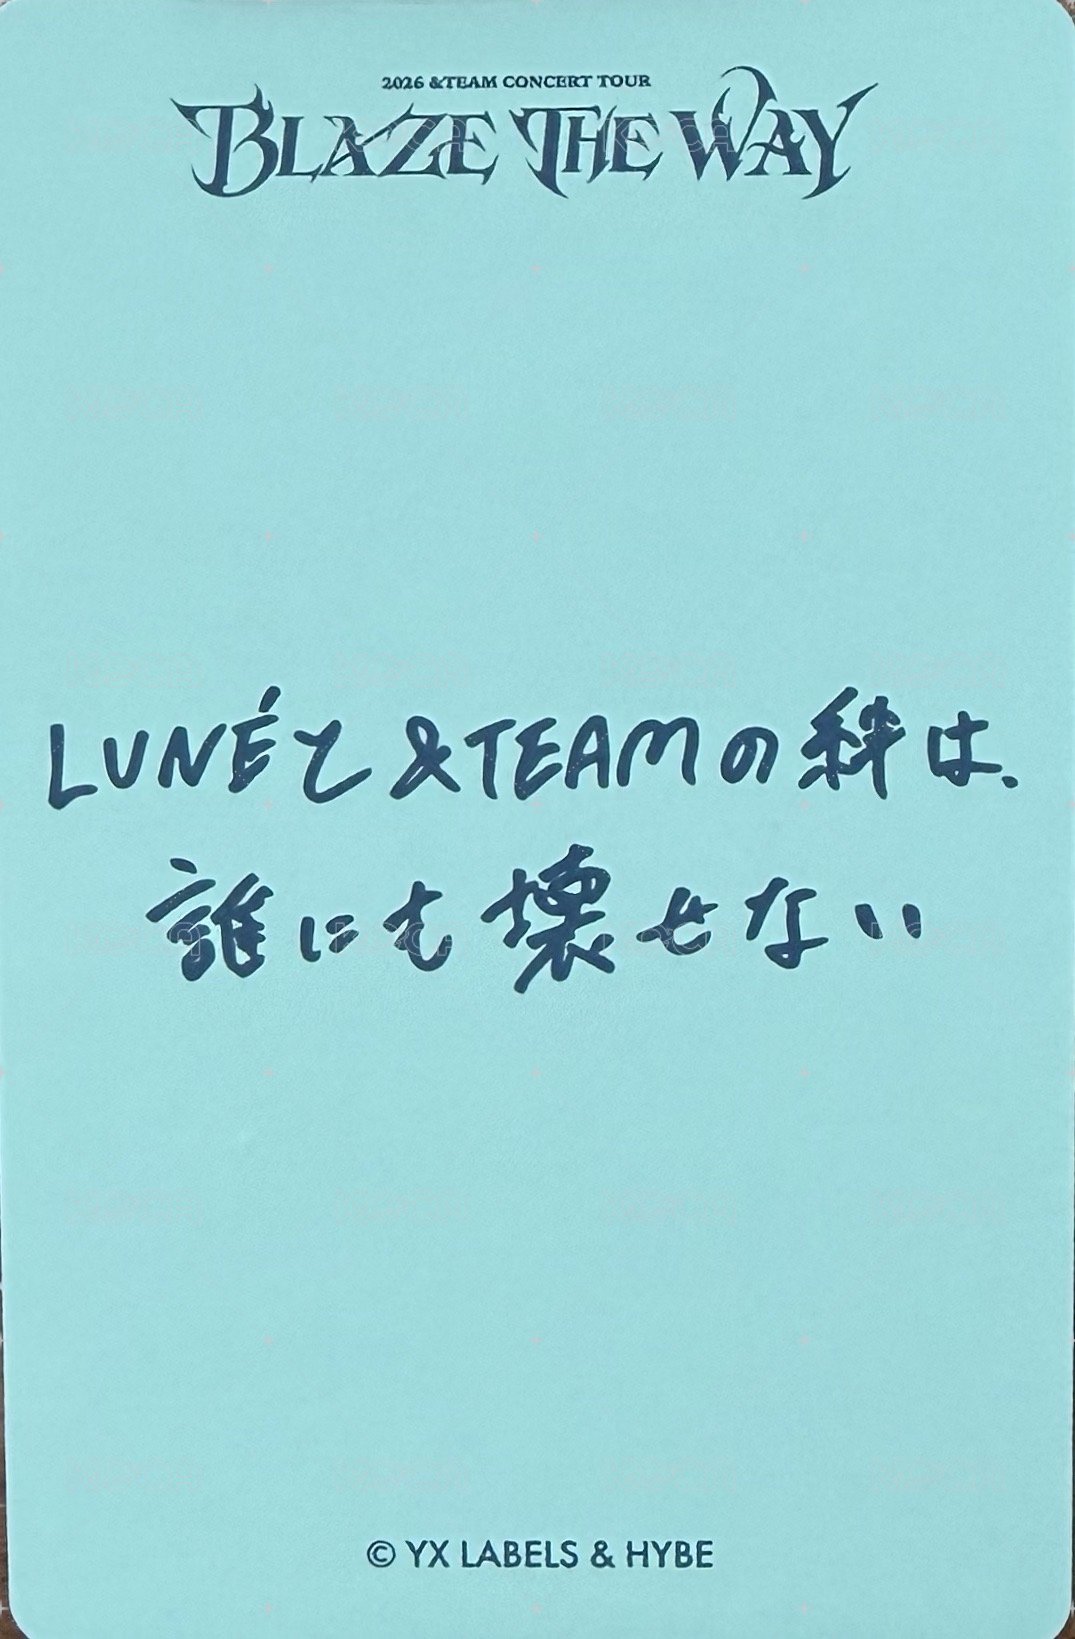 2026 &TEAM CONCERT TOUR
BLAZE THE WAY
LUNÉと&TEAMの絆は、
誰にも壊せない
© YX LABELS & HYBE